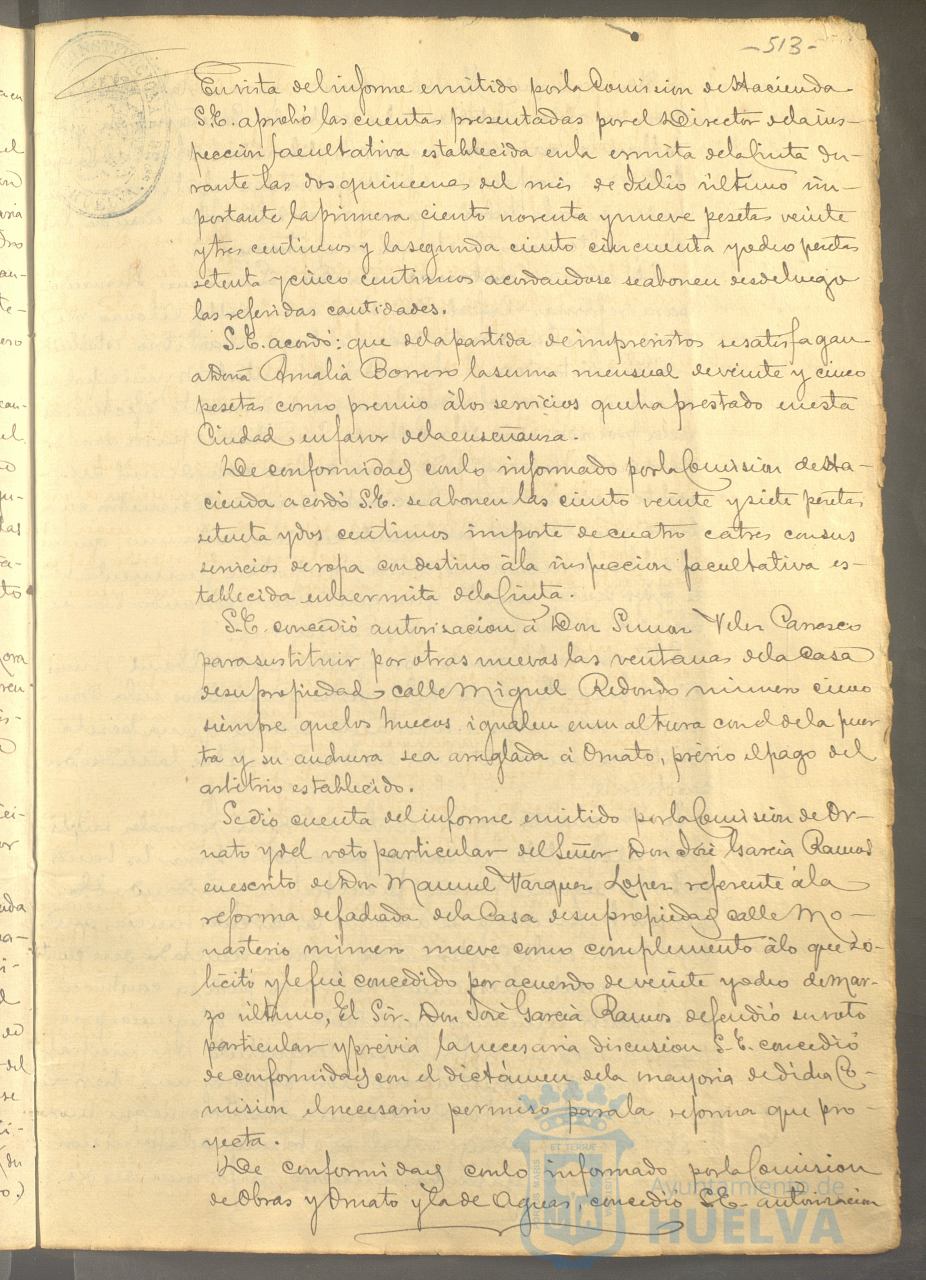 -513-
En vista del informe emitido por la Comision de Hacienda
S.E. aprobó las cuentas presentadas por el Director de la ins-
peccion facultativa establecida en la ermita de la Cinta du-
rante las dos quincenas del mes de Julio último im-
portante la primera ciento noventa y nueve pesetas veinte
y tres centimos y la segunda ciento cincuenta y ocho pesetas
setenta y cinco centimos acordandose se abonen desde luego
las referidas cantidades.
S.E. acordó: que de la partida de imprevistos se satisfagan
a Doña Amalia Borrero la suma mensual de veinte y cinco
pesetas como premio á los servicios que ha prestado en esta
Ciudad en favor de la enseñanza.
De conformidad con lo informado por la Comision de Ha-
cienda acordó S.E. se abonen las ciento veinte y siete pesetas
setenta y dos centimos importe de cuatro catres con sus
servicios de ropa con destino á la inspeccion facultativa es-
tablecida en la ermita de la Cinta.
S.E. concedió autorizacion á Don Simon Velez Carrasco
para sustituir por otras nuevas las ventanas de la Casa
de su propiedad calle Miguel Redondo número cinco
siempre que los huecos igualen en su altura con el de la puer
ta y su anchura sea arreglada á Ornato, prévio el pago del
arbitrio establecido.
Se dió cuenta del informe emitido por la Comision de Or-
nato y del voto particular del Señor Don José Garcia Ramos
en escrito de Don Manuel Vazquez Lopez referente á la
reforma de fachada de la Casa de su propiedad calle Mo-
nasterio número nueve como complemento á lo que so-
licitó y le fué concedido por acuerdo de veinte y ocho de Mar-
zo último, El Sór. Don José Garcia Ramos defendió su voto
particular y prévia la necesaria discusion S.E. concedió
de conformidad con el dictámen de la mayoria de dicha Co-
mision el necesario permiso para la reforma que pro-
yecta.
De conformidad con lo informado por la Comision
de Obras y Ornato y la de Aguas, concedió S.E. autorizacion
Ayuntamiento de
HUELVA